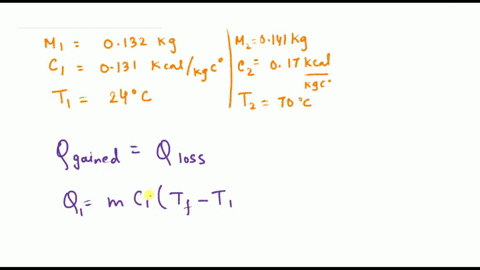 M₁ = 0.132 kg
C₁ = 0.131 Kcal/kgC°
T₁ = 24°C
M₂=0.141 kg
C₂= 0.17 kcal/kgC°
T₂ = 70°C
Qgained = Qloss
Q₁= m C₁ (Tf - T₁